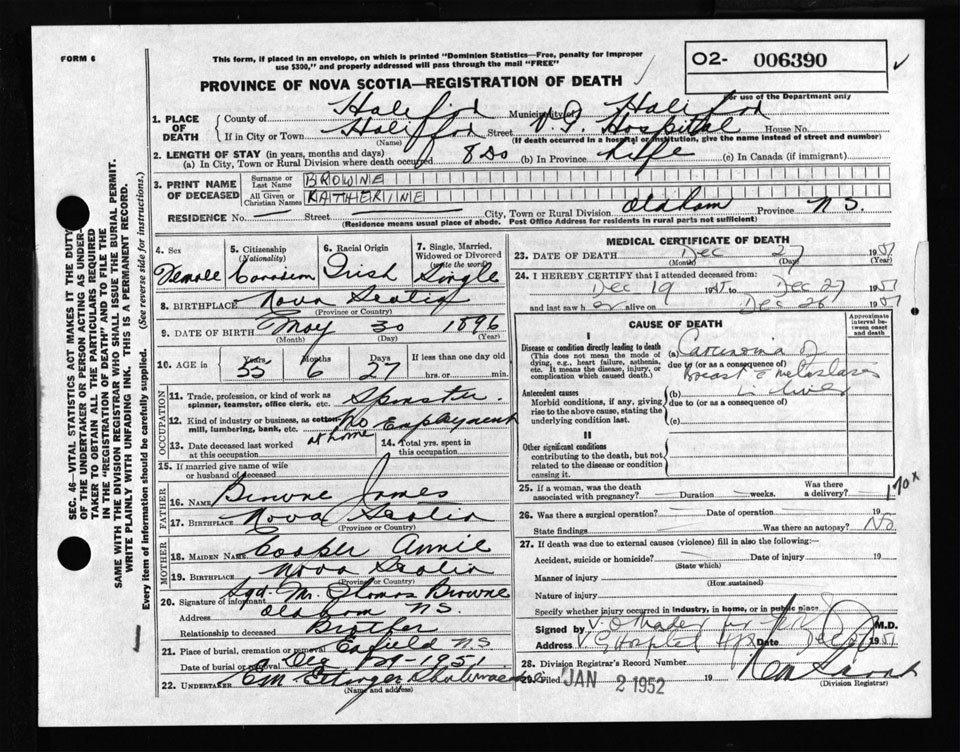 FORM 6
This form, if placed in an envelope, on which is printed "Dominion Statistics—Free, penalty for improper
use $300," and properly addressed will pass through the mail "FREE"
02- 006390
For use of the Department only
PROVINCE OF NOVA SCOTIA—REGISTRATION OF DEATH
1. PLACE OF DEATH
County of Halifax Municipality of Halifax
If in City or Town Halifax Street V. G. Hospital House No.
(Name) (If death occurred in a hospital or institution, give the name instead of street and number)
2. LENGTH OF STAY (in years, months and days)
(a) In City, Town or Rural Division where death occurred 8 Ds (b) In Province Life (c) In Canada (if immigrant)
3. PRINT NAME OF DECEASED
Surname or Last Name BROWNE
All Given or Christian Names KATHERINE
RESIDENCE No. — Street — City, Town or Rural Division Oldham Province N.S.
(Residence means usual place of abode. Post Office Address for residents in rural parts not sufficient)
4. Sex Female
5. Citizenship (Nationality) Canadian
6. Racial Origin Irish
7. Single, Married, Widowed or Divorced (write the word) Single
8. BIRTHPLACE Nova Scotia
(Province or Country)
9. DATE OF BIRTH May 30 1896
(Month) (Day) (Year)
10. AGE in Years 55 Months 6 Days 27 If less than one day old
hrs. or min.
OCCUPATION
11. Trade, profession, or kind of work as spinner, teamster, office clerk, etc. Spinster.
12. Kind of industry or business, as cotton mill, lumbering, bank, etc. No Employment
at home
13. Date deceased last worked at this occupation
14. Total yrs. spent in this occupation
15. If married give name of wife or husband of deceased
FATHER
16. NAME Browne James
17. BIRTHPLACE Nova Scotia
(Province or Country)
MOTHER
18. MAIDEN NAME Cooper Annie
19. BIRTHPLACE Nova Scotia
(Province or Country)
20. Signature of informant Sgd. Mr. Thomas Browne
Address Oldham N.S.
Relationship to deceased Brother
21. Place of burial, cremation or removal Enfield N.S
Date of burial or removal Dec 29-1951
22. UNDERTAKER
(Name and address)
MEDICAL CERTIFICATE OF DEATH
23. DATE OF DEATH Dec 27 1951
(Month) (Day) (Year)
24. I HEREBY CERTIFY that I attended deceased from:
Dec 19 1951 to Dec 27 1951
and last saw her alive on Dec 26 1951
CAUSE OF DEATH
Approximate interval between onset and death
Disease or condition directly leading to death
(This does not mean the mode of dying, e.g., heart failure, asthenia, etc. It means the disease, injury, or complication which caused death.)
(a) Carcinoma of
due to (or as a consequence of)
Breast c metastases
Antecedent causes
Morbid conditions, if any, giving rise to the above cause, stating the underlying condition last.
(b) in liver
due to (or as a consequence of)
(c)
II
Other significant conditions contributing to the death, but not related to the disease or condition causing it.
25. If a woman, was the death associated with pregnancy? Duration weeks. Was there a delivery?
170x
26. Was there a surgical operation? Date of operation 19
State findings Was there an autopsy? No
27. If death was due to external causes (violence) fill in also the following:—
Accident, suicide or homicide? Date of injury 19
(State which)
Manner of injury
(How sustained)
Nature of injury
Specify whether injury occurred in industry, in home, or in public place
Signed by V. O. Mader M.D.
Address V G Hospital Hfx Date Dec 27 1951
28. Division Registrar's Record Number
29. Filed JAN 2 1952 19
(Division Registrar)
SEC. 46—VITAL STATISTICS ACT MAKES IT THE DUTY
OF THE UNDERTAKER OR PERSON ACTING AS UNDER-
TAKER TO OBTAIN ALL THE PARTICULARS REQUIRED
IN THE "REGISTRATION OF DEATH" AND TO FILE THE
SAME WITH THE DIVISION REGISTRAR WHO SHALL ISSUE THE BURIAL PERMIT.
WRITE PLAINLY WITH UNFADING INK. THIS IS A PERMANENT RECORD.
Every item of information should be carefully supplied. (See reverse side for instructions.)